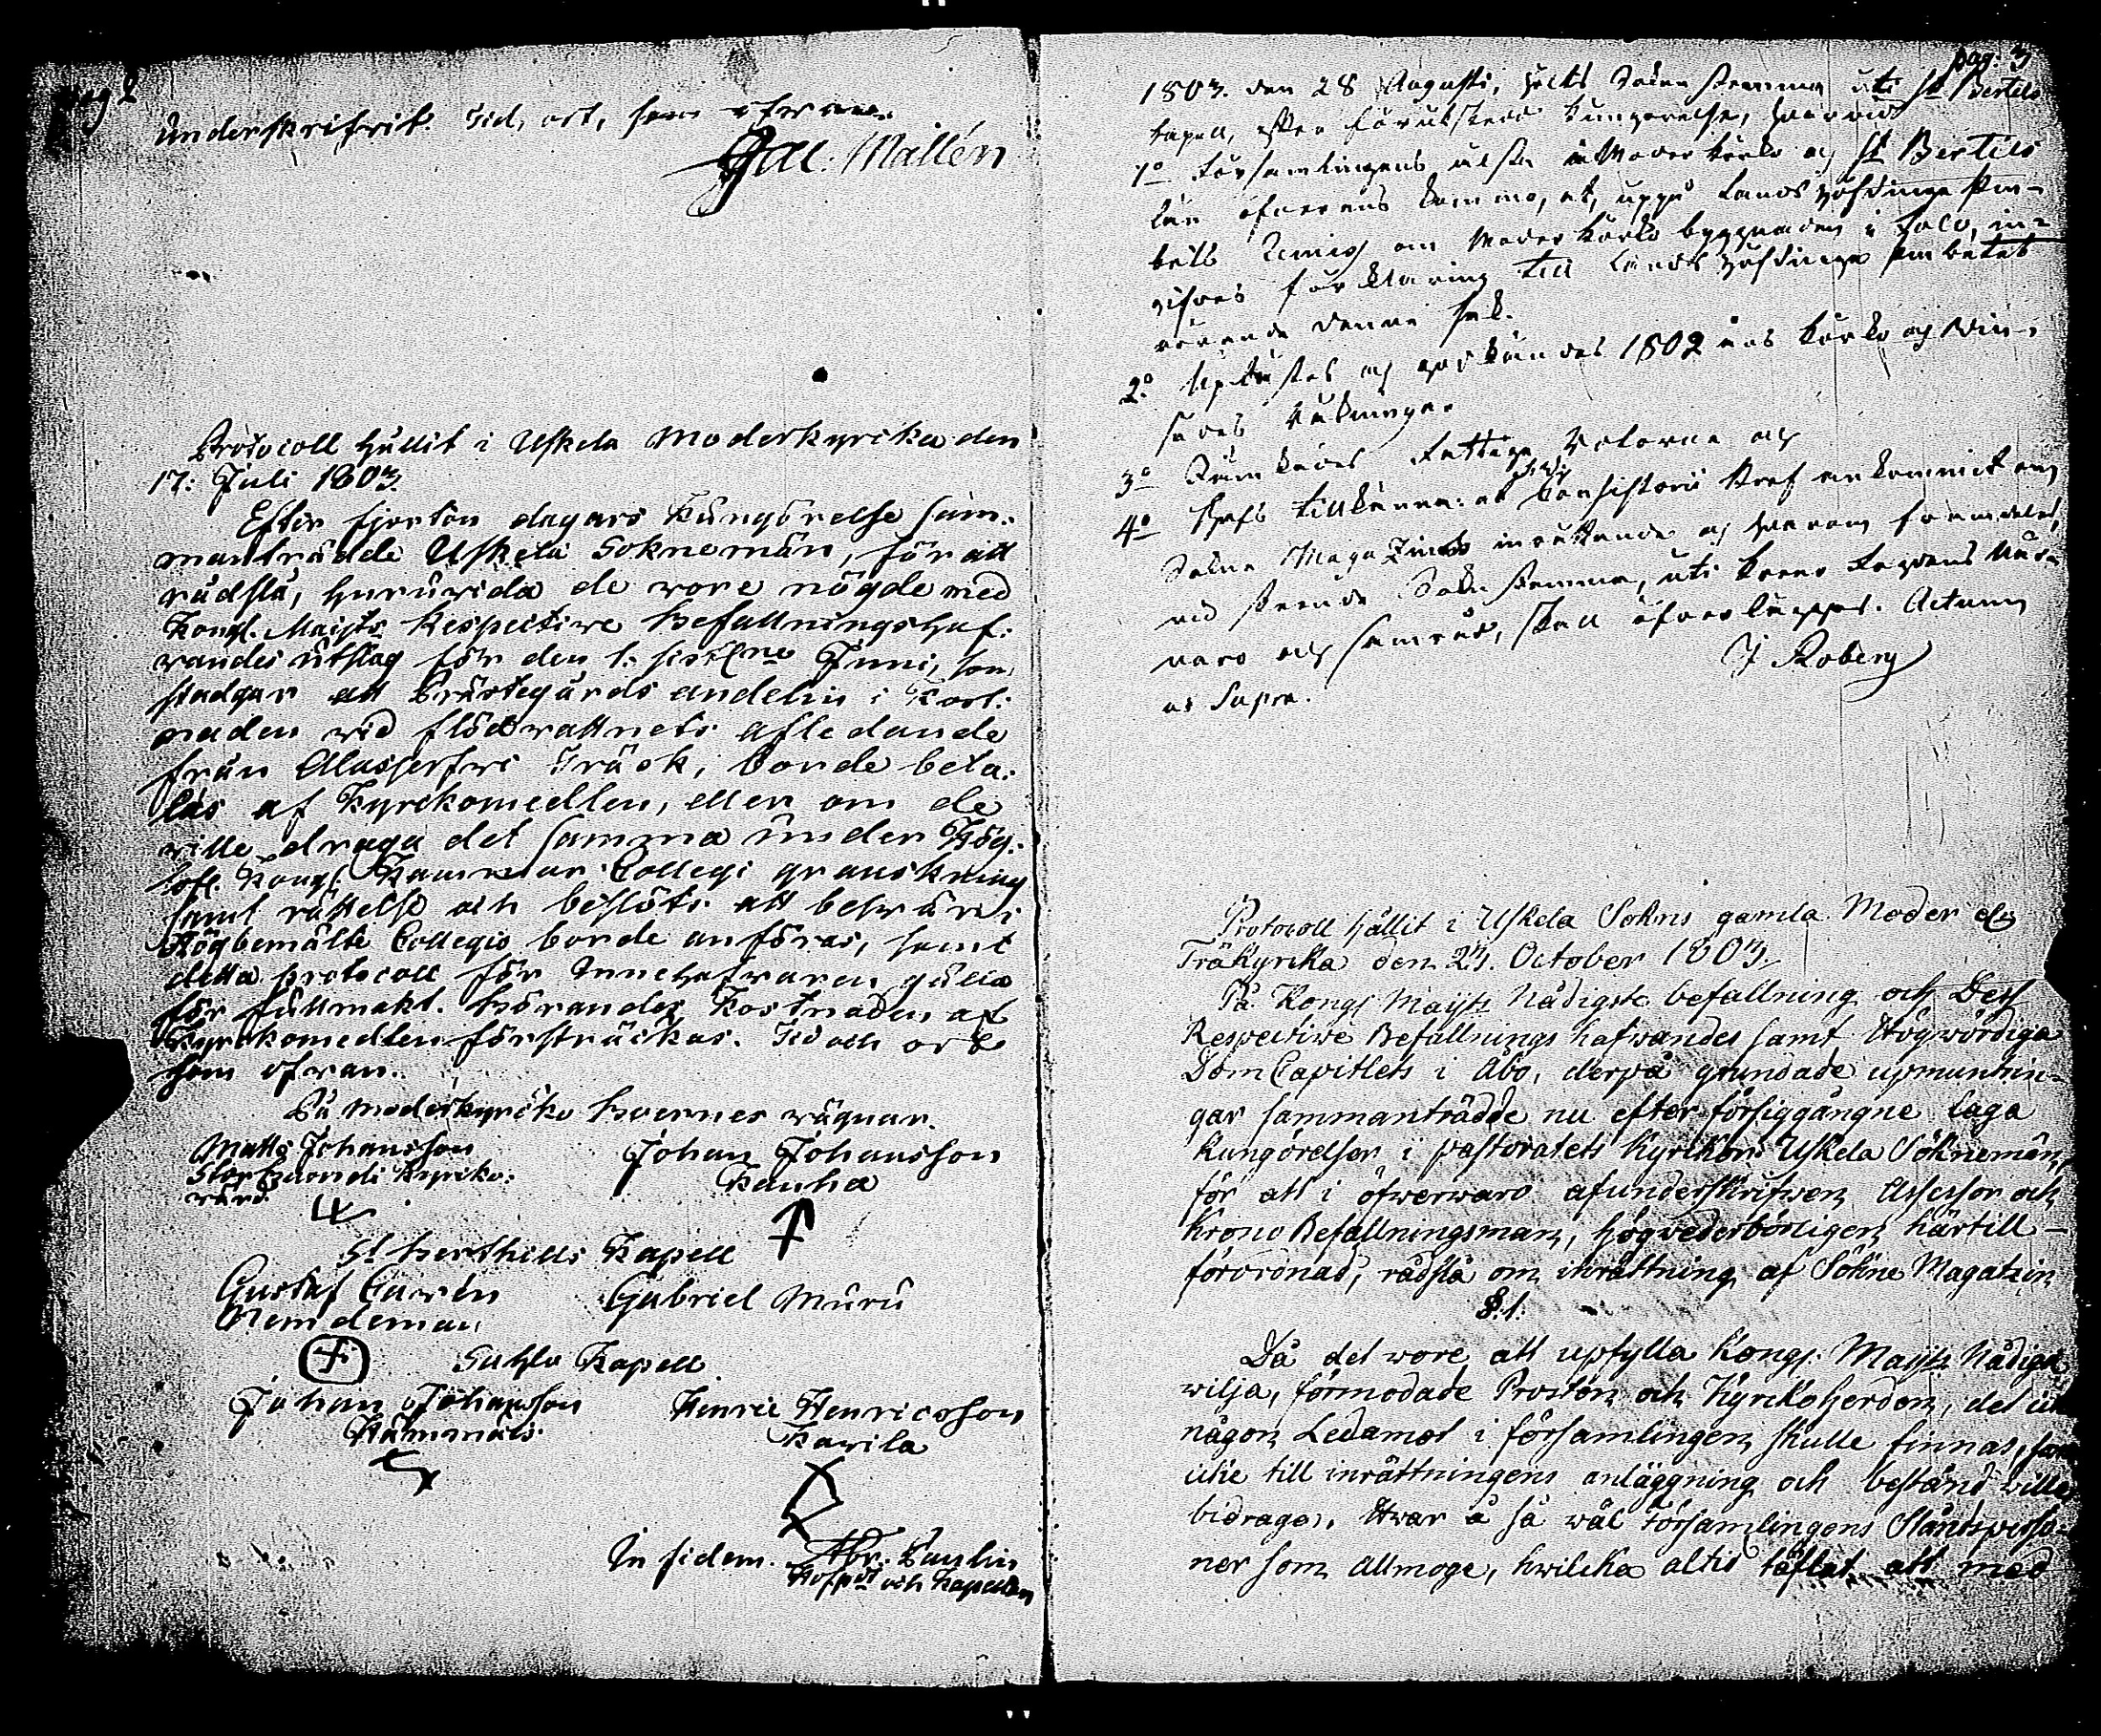 pag 2
underskrifvit. Tid, ort, som ofwan.
Jac. Mallén
Protocoll hållit i Uskela Moderkyrcka den
17: Juli 1803.
Efter fjorton dagars Kungörelse sam-
manträdde Uskela Soknemän, för att
rådslå, huruwida de wore nögde med
Kongl. Maijts Respective Befallningshaf-
wandes utslag för den 1: sistl:ne Junii, som
stadgar att Prästegårds andelen i Kost-
naden wid flödwattnets afledande
från Träsk, borde beta-
las af Kyrckomedlen, eller om de
wille draga det samma under Hög-
lofl. Kongl Kammar Collegi granskning
samt rättelse och beslöts att beswär i
Högbemälte Collegio borde anföras, samt
detta protocoll för Innehafwaren gälla
för fullmakt. Börandes Kostnaden af
Kyrckomedlen försträckas. Tid och ort
som ofwan.
På moderkyrcko boernes wägnar.
Matts Johansson
Kyrcko-
wärd.
Johan Johansson
Kauha
St Berthills Kapell
Gustaf Cawén
Nemdeman
Gabriel Muru
Kapell
Johan Johansson
Henric Henricsson
Kawila
In fidem. Abr: Paulin
och Kapellan
pag: 3
1803. den 28 Augusti, hölts Sokne stemma uti St Bertils
kapell, efter förutskedd kungörelse, hwarwid
1o Församlingens älste i Moder kyrko och St Bertils
öfverens kommo, at, uppå Landshöfdinge Em-
bets Remiss om Moderkyrko byggnaden i Salo, in-
gifves förklaring till Landshöfdinge embetet
rörande denna sak.
2o Uplästes och godkändes 1802 års kyrko och
Räkningar
3o Fattige Rotarne och
4o Gafs tillkänna: at Consistorii Bref ankommit om
Sokne Magazins inrättande och hwarom framdeles,
vid skeende Sokne stemma, uti krono Fogdens När-
varo och samråd, skall öfverläggas. Actum
ut Supra.
J Roberg
Protocoll hållit i Uskela Sokns gamla Moder
Träkyrcka den 23. October 1803.
På Kongl Maijts Nådigste befallning och Dess
Respective Befallnings hafwandes samt Högwördiga
DomCapitlets i Åbo, derpå grundade upmuntrin-
gar sammanträdde nu efter försiggångne laga
kungörelser i pastoratets Kyrckor Uskela Söknemän,
för att i öfwerwaro afunderskrifwen Assessor och
Krono Befallningsman, högwederbörligen härtill
förordnad, rådslå om inrättning af Sökne Magatzin
§. 1.
Då det wore att upfylla Kongl. Maijts Nådiga
wilja, förmodade Prosten och Kyrckoherden, det
någon Ledamot i församlingen skulle finnas, som
icke till inrättningens anläggning och bestånd wille
bidraga. Hwar å så wäl Församlingens Ståndsperso-
ner som Allmoge, hwilcka altid täflat att med